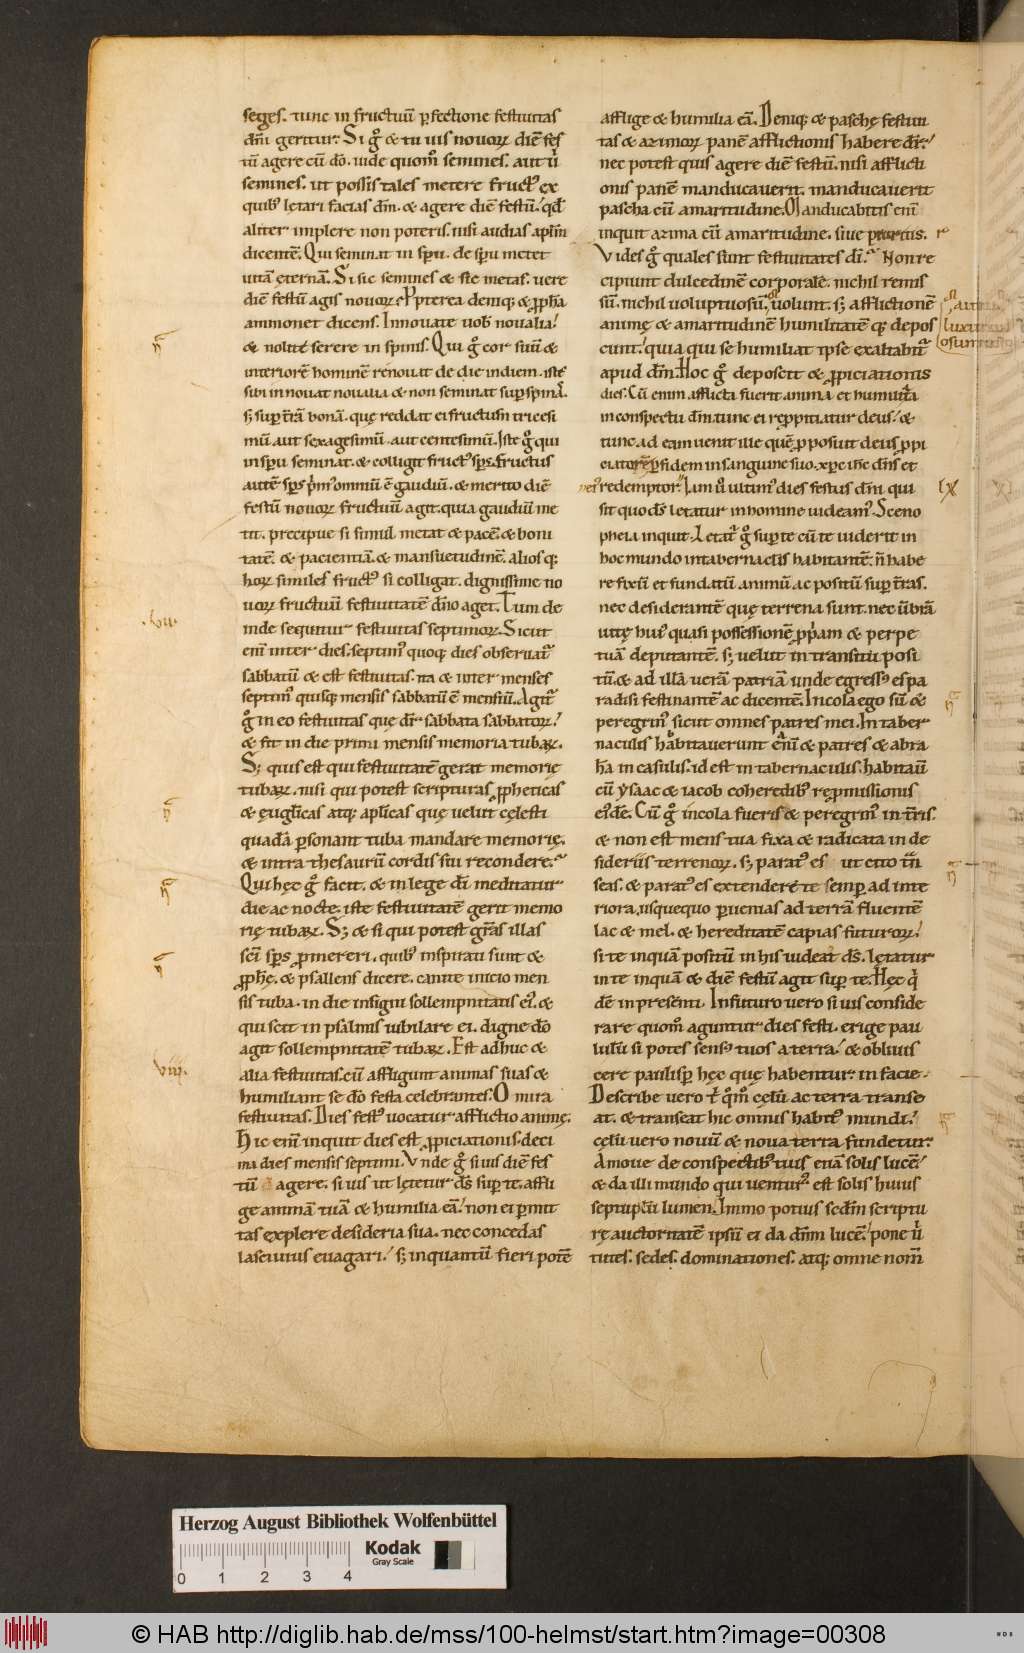 seges. tunc in fructuū p̲fectione festiuitas
dn̄i geritur. Si g̊ & tu uis nouoꝝ diē fes
tū agere cū dō. uide quom̄ semines. aut ů
semines. ut possis tales metere fruct᷒ ex
quib᷒ lętari facias dm̄. & agere diē festū. qđ
aliter implere non poteris. nisi audias apl̄m
dicentē. Qui seminat in sp̄u. de sp̄u metet
uitā ęternā. Si sic semines & sic metas. uere
diē festū agis nouoꝝ. Ppterea deniq; & ꝓph̄a
ammonet dicens. Innouate uob̄ noualia.
& nolite serere in spinis. Qui g̊ cor suū &
interiorē hominē renouat de die in diem. iste
sibi innouat noualia & non seminat sup̲ spinā.
sꝫ sup̲ t̄rā bonā. quę reddat ei fructum tricesi
mū aut sexagesimū. aut centesimū. Iste g̊ qui
in sp̄u seminat. & colligit fruct᷒ sp̄s. Fructus
autē sp̄s p̓m᷒ omniū ē gaudiū. & merito diē
festū nouoꝝ fructuū agit. quia gaudiū me
tit. precipue si simul metat & pacē. & boni
tatē. & pacientiā. & mansuetudinē. alios q;
hoꝝ similes fruct᷒ si colligat. dignissime no
uoꝝ fructuū festiuitatē dn̄o aget. Tum de
inde sequitur festiuitas septimoꝝ. Sicut
.Vii.
eni᷒ inter dies. septim᷒ quoq; dies obseruat᷒
sabbatū & est festiuitas. ita & inter menses
septim᷒ quisq; mensis sabbatū ē mensiū. Agit᷒
g̊ in eo festiuitas quę dr̄ sabbata sabbatoꝝ.
& fit in die primi mensis memoria tubaꝝ.
Sꝫ quis est qui festiuitatē gerat memorię
tubaꝝ. nisi qui potest scripturas ꝓpheticas
& ęuglicas atq; aplicas quę uelut cęlesti
quadā p̲sonant tuba mandare memorię.
& intra thesaurū cordis sui recondere.
Qui hęc g̊ facit. & in lege dī meditatur
die ac nocte. iste festiuitatē gerit memo
rię tubaꝝ. Sꝫ & si qui potest gr̄as illas
sc̄i sp̄s ꝓmereri. quib᷒ inspirati sunt &
ꝓphę. & psallens dicere. canite inicio men
sis tuba. in die insigni sollempnitatis ei᷒. &
qui scit in psalmis iubilare ei. digne dō
agit sollempnitatē tubaꝝ. Est adhuc &
Viii.
alia festiuitas. cū affligunt animas suas &
humiliant se dō festa celebrantes. O mira
festiuitas. Dies fest᷒ uocatur afflictio animę.
Hic eni᷒ inquit dies est ꝓpiciationis. deci
ma dies mensis septimi. Vnde g̊ si uis diē fes
tū agere. si uis ut lętetur ds̄ sup̲ te. affli
ge animā tuā & humilia eā. non ei p̲mit
tas explere desideria sua. nec concedas
lasciuius euagari. sꝫ inquantū fieri potē
afflige & humilia eā. Deniq; & paschę festiui
tas & azimoꝝ panē afflictionis habere dr̄.
nec potest quis agere diē festū. nisi afflicti
onis panē manducauerit. manducauerit
pascha cū amaritudine. Manducabitis eni᷒
inquit azima cū amaritudine. siue
Vides g̊ quales sunt festiuitates dī. Non re
cipiunt dulcedinē corporalē. nichil remis
sū. nichil uoluptuosū, uolunt. sꝫ afflictionē
animę & amaritudinē humilitatē q; depos
cunt. quia qui se humiliat ipse exaltabit᷒
apud dm̄. Hoc g̊ deposcit & ꝓpiciationis
dies. Cū enim afflicta fuerit anima et humiliata
in conspectu dm̄. tunc ei repp̓tiatur deus. &
tunc ad eam uenit ille quē p̲posuit deus ꝓpi
ciatorē p̲ fidem in sanguine suo. xp̄c ih̄c dn̄s et
redemptor. Iam ů ultim᷒ dies festus dn̄i qui
IX
sit quo ds̄ letatur in homine uideam᷒. Sceno
phegia inquit. Letat᷒ g̊ sup̲ te cū te uiderit in
hoc mundo in tabernaclis habitantē. n̄ habe
re fixū et fundatū animū ac positū sup̲ t̄ras.
nec desiderantē quę terrena sunt. nec ūbrā
uitę hui᷒ quasi possessionē ꝓp̓am & perpe
tuā deputantē. sꝫ uelut in transitu posi
tū. & ad illā uerā patriā unde egress᷒ es pa
radisi festinantē ac dicentē. Incola ego sū &
peregrin᷒ sicut omnes patres mei. In taber
naculis habitauerunt eni᷒ & patres & abra
hā in casulis. id est in tabernaculis. habitauit
cū ysaac & iacob coheredib᷒ repromissionis
ei᷒dē. Cū g̊ incola fueris & peregrin᷒ in t̄ris.
& non est mens tua fixa & radicata in de
sideriis terrenoꝝ. sꝫ parat᷒ es ut cito t̄n
seas. & parat᷒ es extendere te semp̲ ad inte
riora. usquequo p̲uenias ad terrā fluentē
lac & mel. & hereditatē capias futuroꝝ.
si te inquā positū in his uideat ds̄. lętatur
in te inquā & diē festū agit sup̲ te. Hęc q̓
dē in presenti. In futuro uero si uis conside
rare quom̄ aguntur dies festi. erige pau
lulū si potes sens᷒ tuos a terra. & obliuis
cere paulisp̲ hęc quę habentur in facie.
Describe vero t̓ q̊m̊ cęlū ac terra transe
at. & transeat hic omnis habit᷒ mundi.
cęlū vero nouū & noua terra fundetur.
Amoue de conspectib᷒ tuis etiā solis lucē.
& da illi mundo qui ventur᷒ est solis huius
septuplū lumen. Immo potius sc̄dm scriptu
rę auctoritatē ipsū ei da dn̄m lucē. pone ů
tutes. sedes. dominationes. atq; omne nom̄
Herzog August Bibliothek Wolfenbüttel
Kodak
Gray Scale
0 1 2 3 4
© HAB http://diglib.hab.de/mss/100-helmst/start.htm?image=00308